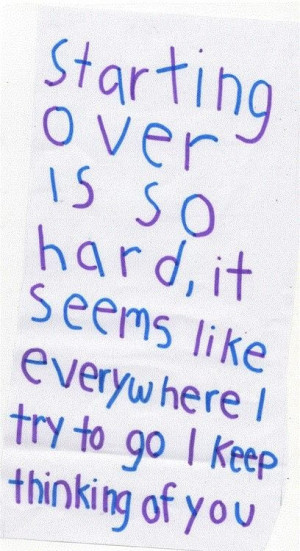 Starting
over
is so
hard, it
seems like
everywhere I
try to go I keep
thinking of you